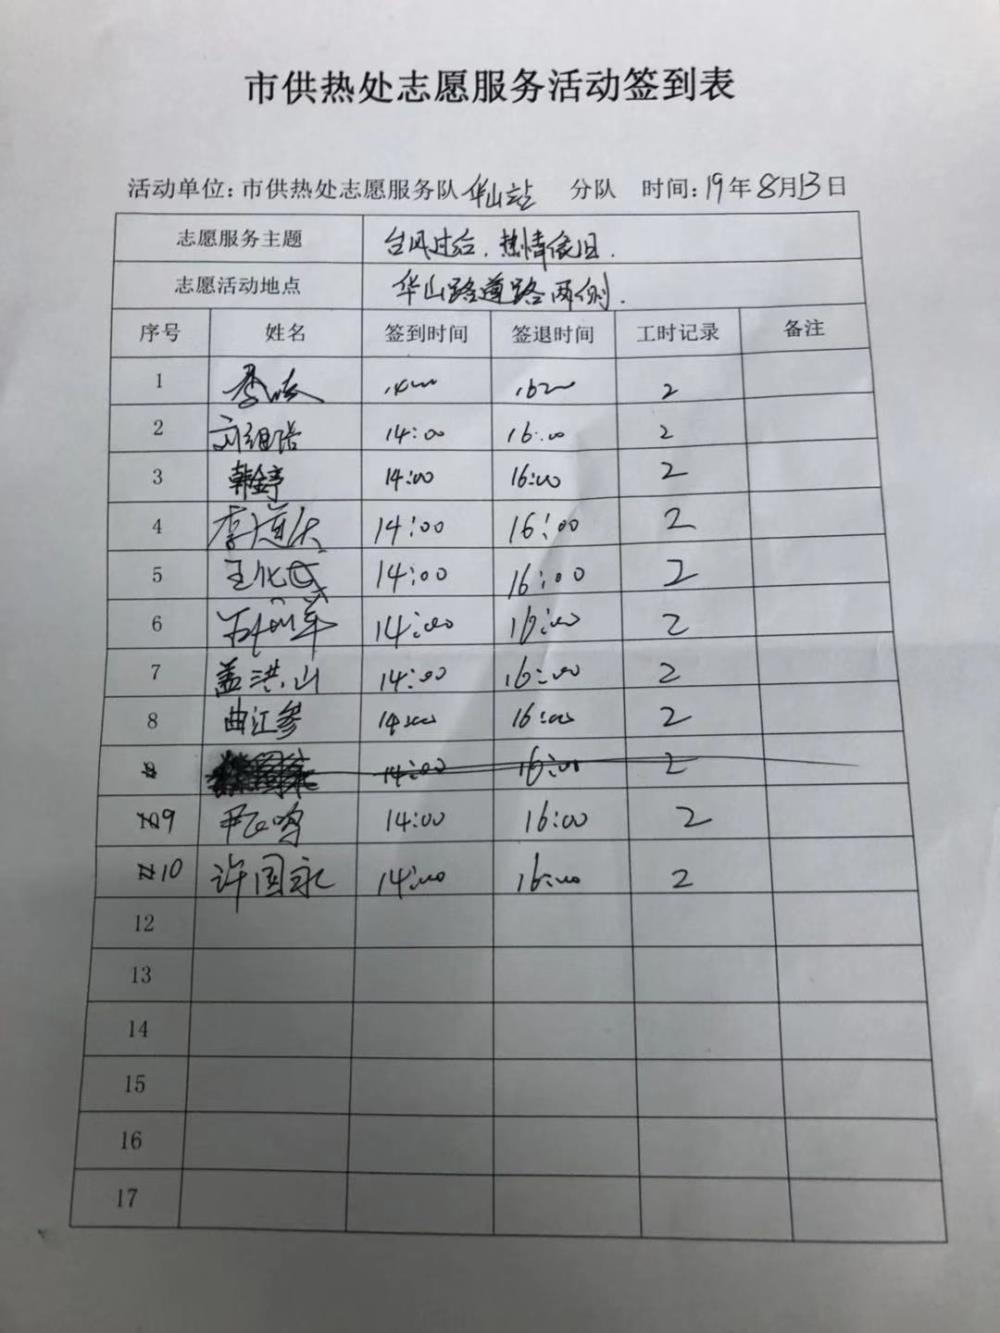 市供热处志愿服务活动签到表
活动单位：市供热处志愿服务队 华山站 分队 时间：19年8月13日
志愿服务主题 台风过后，热情依旧.
志愿活动地点 华山路道路两侧.
序号 姓名 签到时间 签退时间 工时记录 备注
1 14:00 16:00 2
2 14:00 16:00 2
3 韩金亭 14:00 16:00 2
4 14:00 16:00 2
5 14:00 16:00 2
6 14:00 16:00 2
7 盖洪山 14:00 16:00 2
8 曲江参 14:00 16:00 2
14:00 16:00 2
9 14:00 16:00 2
10 许国永 14:00 16:00 2
12
13
14
15
16
17